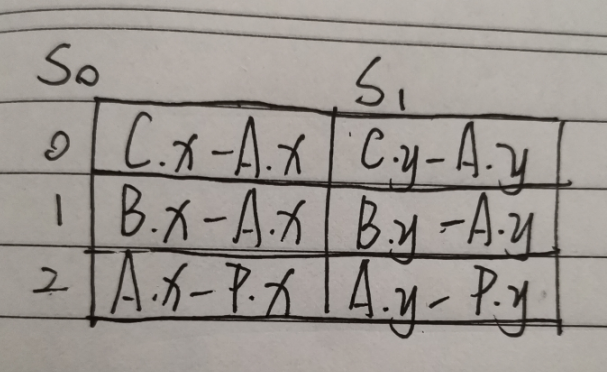 S₀ S₁
0 C.x-A.x C.y-A.y
1 B.x-A.x B.y-A.y
2 A.x-P.x A.y-P.y